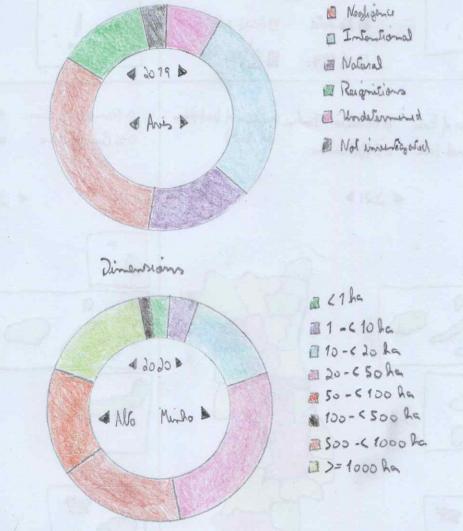 Negligence
Intentional
Natural
Reignitions
Undetermined
Not investigated
◀ 2019 ▶
◀ Aves ▶
Dimensions
◀ 2020 ▶
◀ Alto Minho ▶
< 1 ha
1 - < 10 ha
10 - < 20 ha
20 - < 50 ha
50 - < 100 ha
100 - < 500 ha
500 - < 1000 ha
>= 1000 ha